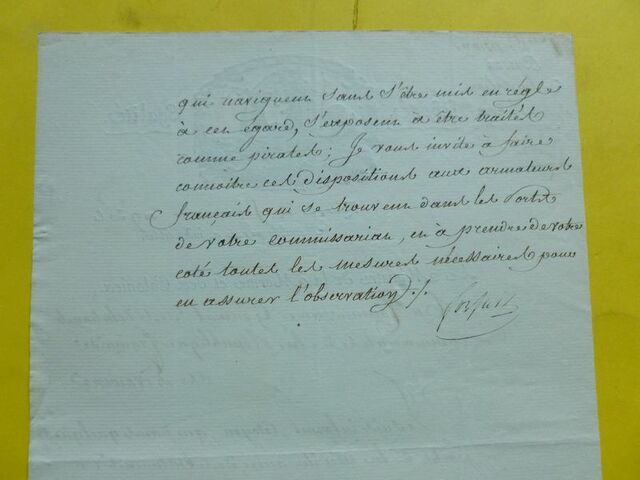 qui naviguent sans s'être mis en régle
à cet égard, s'exposent à être traités
comme pirates; Je vous invite à faire
connoître ces dispositions aux armateurs
français qui se trouvent dans les Ports
de votre commissariat, et à prendre de votre
coté toutes les mesures nécessaires pour
en assurer l'observation ./.
forfait